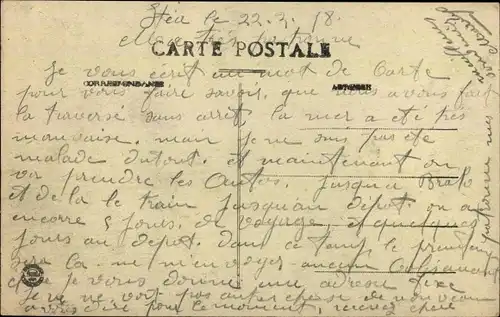 Itéa le 22.3.18.
CARTE POSTALE
CORRESPONDANCE
ADRESSE
Je vous écrit un mot de Carte
pour vous faire savoir, que nous avons fait
la traversé sans arrêt, la mer a été très
mauvaise. mais je ne suis pas été
malade du tout. et maintenant on
va prendre les Autos. jusqu'a Bralo
et de la le train jusqu'au dépot. on a
encorre 5 jours de voyage et quelques
jours au depot. dans ce temp, le
sera la. ne m'envoyer aucun Colis avant
que je vous donne une adresse fixe
Je ne voit pas autre chose de nouveau
a vous dire pour le moment, recevez chère